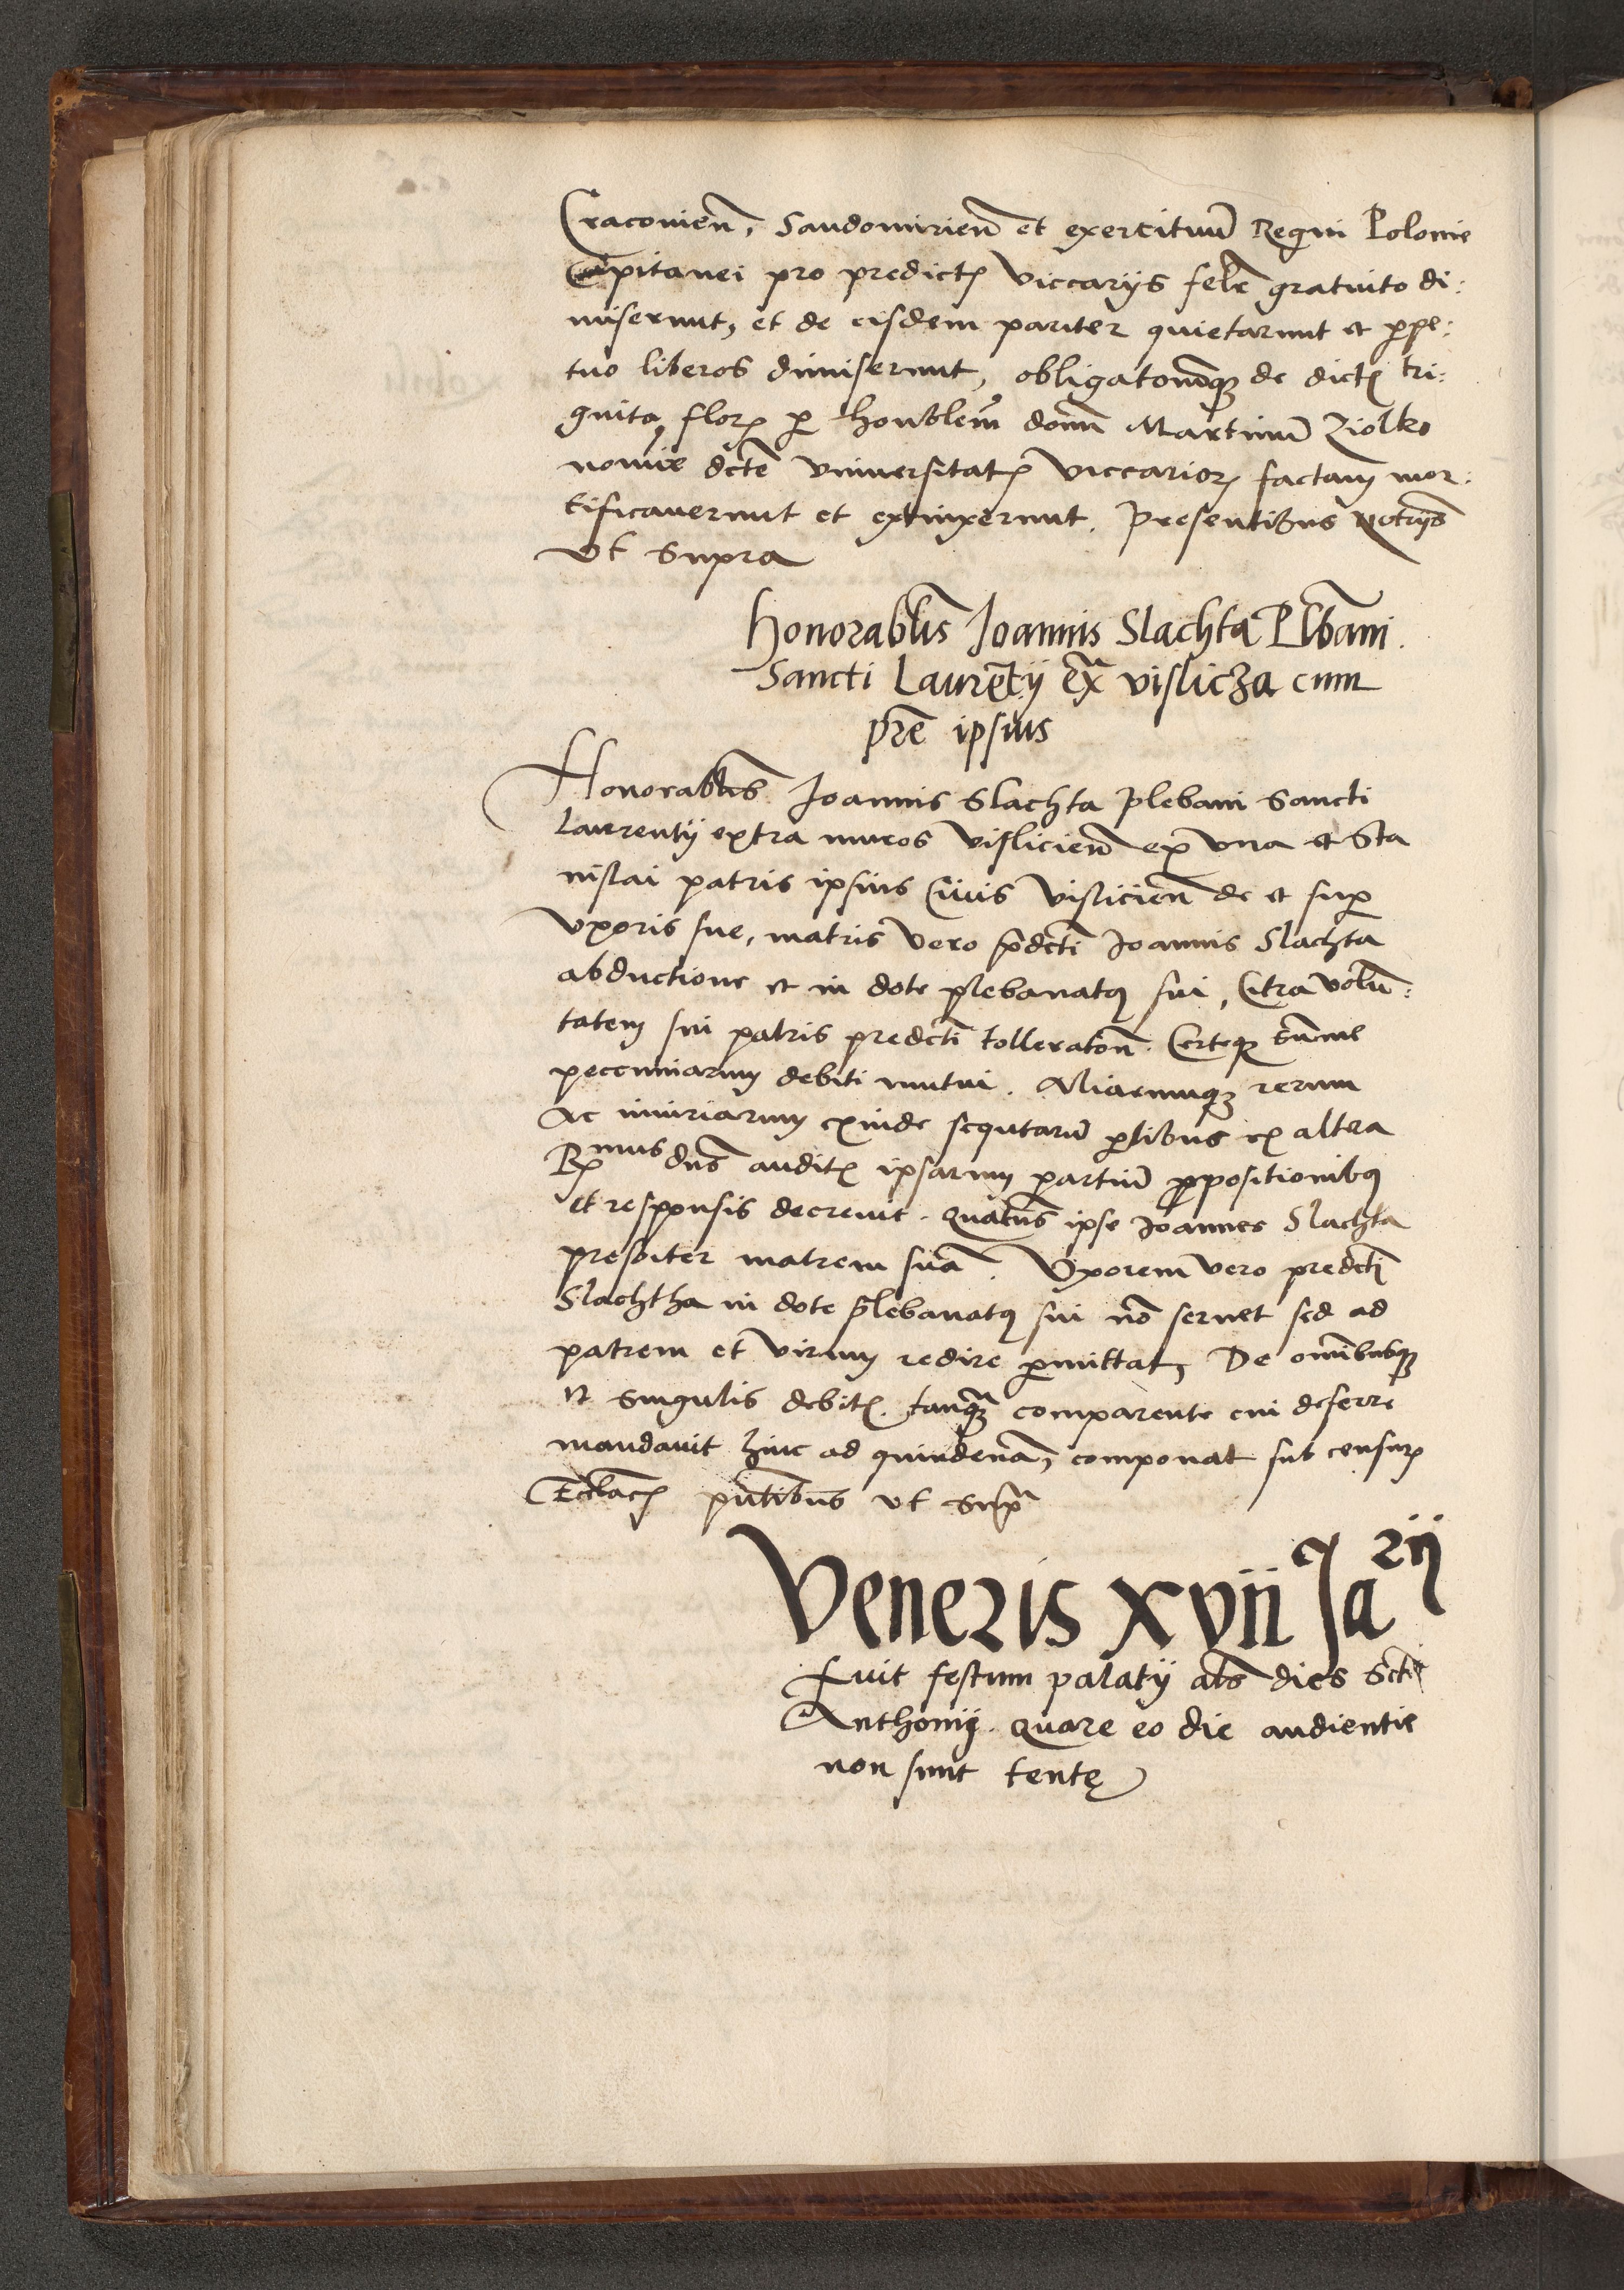 Craconień, Sandomirień et exercituū Regni Polonie
Capitanei pro predictꝭ viccarijs felē gratuito di:
miserunt, et de eisdem pariter quietarunt et ꝑpe:
tuo liberos dimiserunt, obligatōnēqꝫ de dictꝭ tri:
ginta florꝫ ꝑ honoblem̄ dom̄ Martinū Ziolko
noīe dcte vniuersitatꝭ viccarioꝝ factam mor:
tificauerunt et extinxerunt. Presentibus notrijs
vt supra
Honorabl̄is Joannis Slachta Plb̄ani.
Sancti Laurētij ex̄ vislicza cum
pr̄e ipsius
Honorabl̄is Joannis Slachta plebani Sancti
Laurentij extra muros vislicień ex vna et Sta
nislai patris ipsius Ciuis vislicień de et sup̱
vxoris sue, matris vero p̄dcti Joannis Slachta
abductione et in dote plebanatꝯ sui, Citra volū:
tatem sui patris predcti tolleratōn. Certeqꝫ summe
peccuniarum debiti mutui. Aliarumqꝫ rerum
Ac iniuriarum exinde sequtarū ꝑtibus ex altera
Rmus dn̄s auditꝭ ipsarum partiū ꝓpositionibꝯ
et responsis decreuit. quatn̄s ipse Joannes Slachta
presbiter matrem suā. Vxorem vero predcti
Slachtha in dote plebanatꝯ sui nō seruet sed ad
patrem et virum redire ꝑmittat, De omībusqꝫ
et singulis debitꝭ. tanqꝫ comparente cui deferre
mandauit hinc ad quindenā, componat sub censurꝭ
Eccl̄acꝭ pn̄tibus vt supᵃ
Veneris xvii Jaʳⁱʲ
Fuit festum palatij al̄s dies Scti
Anthonij. quare eo die audientie
non sunt tentę